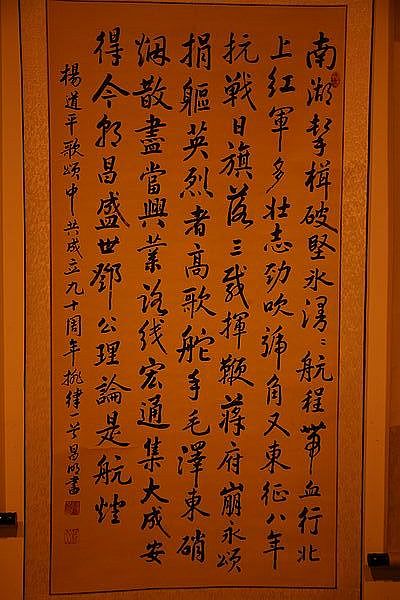 南湖擊楫破堅冰漫漫航程帶血行北
上紅軍多壯志勁吹號角又東征八年
抗戰日旗落三載揮鞭蔣府崩永頌
捐軀英烈者高歌舵手毛澤東硝
烟散盡當興業路线宏通集大成安
得今朝昌盛世鄧公理論是航燈
楊道平歌頌中共成立九十周年排律一首昌明書